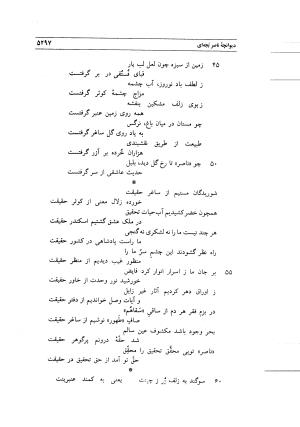 دیوانچهٔ ناصر بجه‌ای
۵۲۹۷
۴۵ زمین از سبزه چون لعل لب یار
قبای فستقی در بر گرفتست
ز لطف باد نوروز، آب چشمه
مزاج چشمهٔ کوثر گرفتست
ز بوی زلف مشکین بنفشه
همه روی زمین عنبر گرفتست
چو مستان در میان باغ، نرگس
به یاد روی گل ساغر گرفتست
طبیعت از طریق نقشبندی
هزاران خُرده بر آزر گرفتست
۵۰ چو «ناصر» تا رخ گل دید، بلبل
حدیث عاشقی از سر گرفتست
*
شوریدگان مستیم از ساغر حقیقت
خورده زلال معنی از کوثر حقیقت
همچون خضر کشیدیم آب حیات تحقیق
در ملک عشق گشتیم اسکندر حقیقت
هر چند نیست ما را نه لشکری نه گنجی
ما راست پادشاهی در کشور حقیقت
راه نظر گشودند این چشم سرّ ما را
منظور غیب دیدیم از منظر حقیقت
۵۵ بر جان ما ز اسرار انوار کرد فایض
خورشید نور وحدت از خاور حقیقت
ز اوراق دهر کردیم آثار غیر زایل
و آیات وصل خواندیم از دفتر حقیقت
در بزم فقر هر دم از ساقی «سقاهُم»
صافی «طهور» نوشیم از ساغر حقیقت
بحر وجود باشد مکشوف عین سالم
شد حلّهٔ درونم پرگوهر حقیقت
«ناصر» تویی محقّق تحقیق را محقّق
حقّ تو آمد از حق تحقیق در حقیقت
*
۶۰ سوگند به زلف
یعنی به کمند عنبرینت